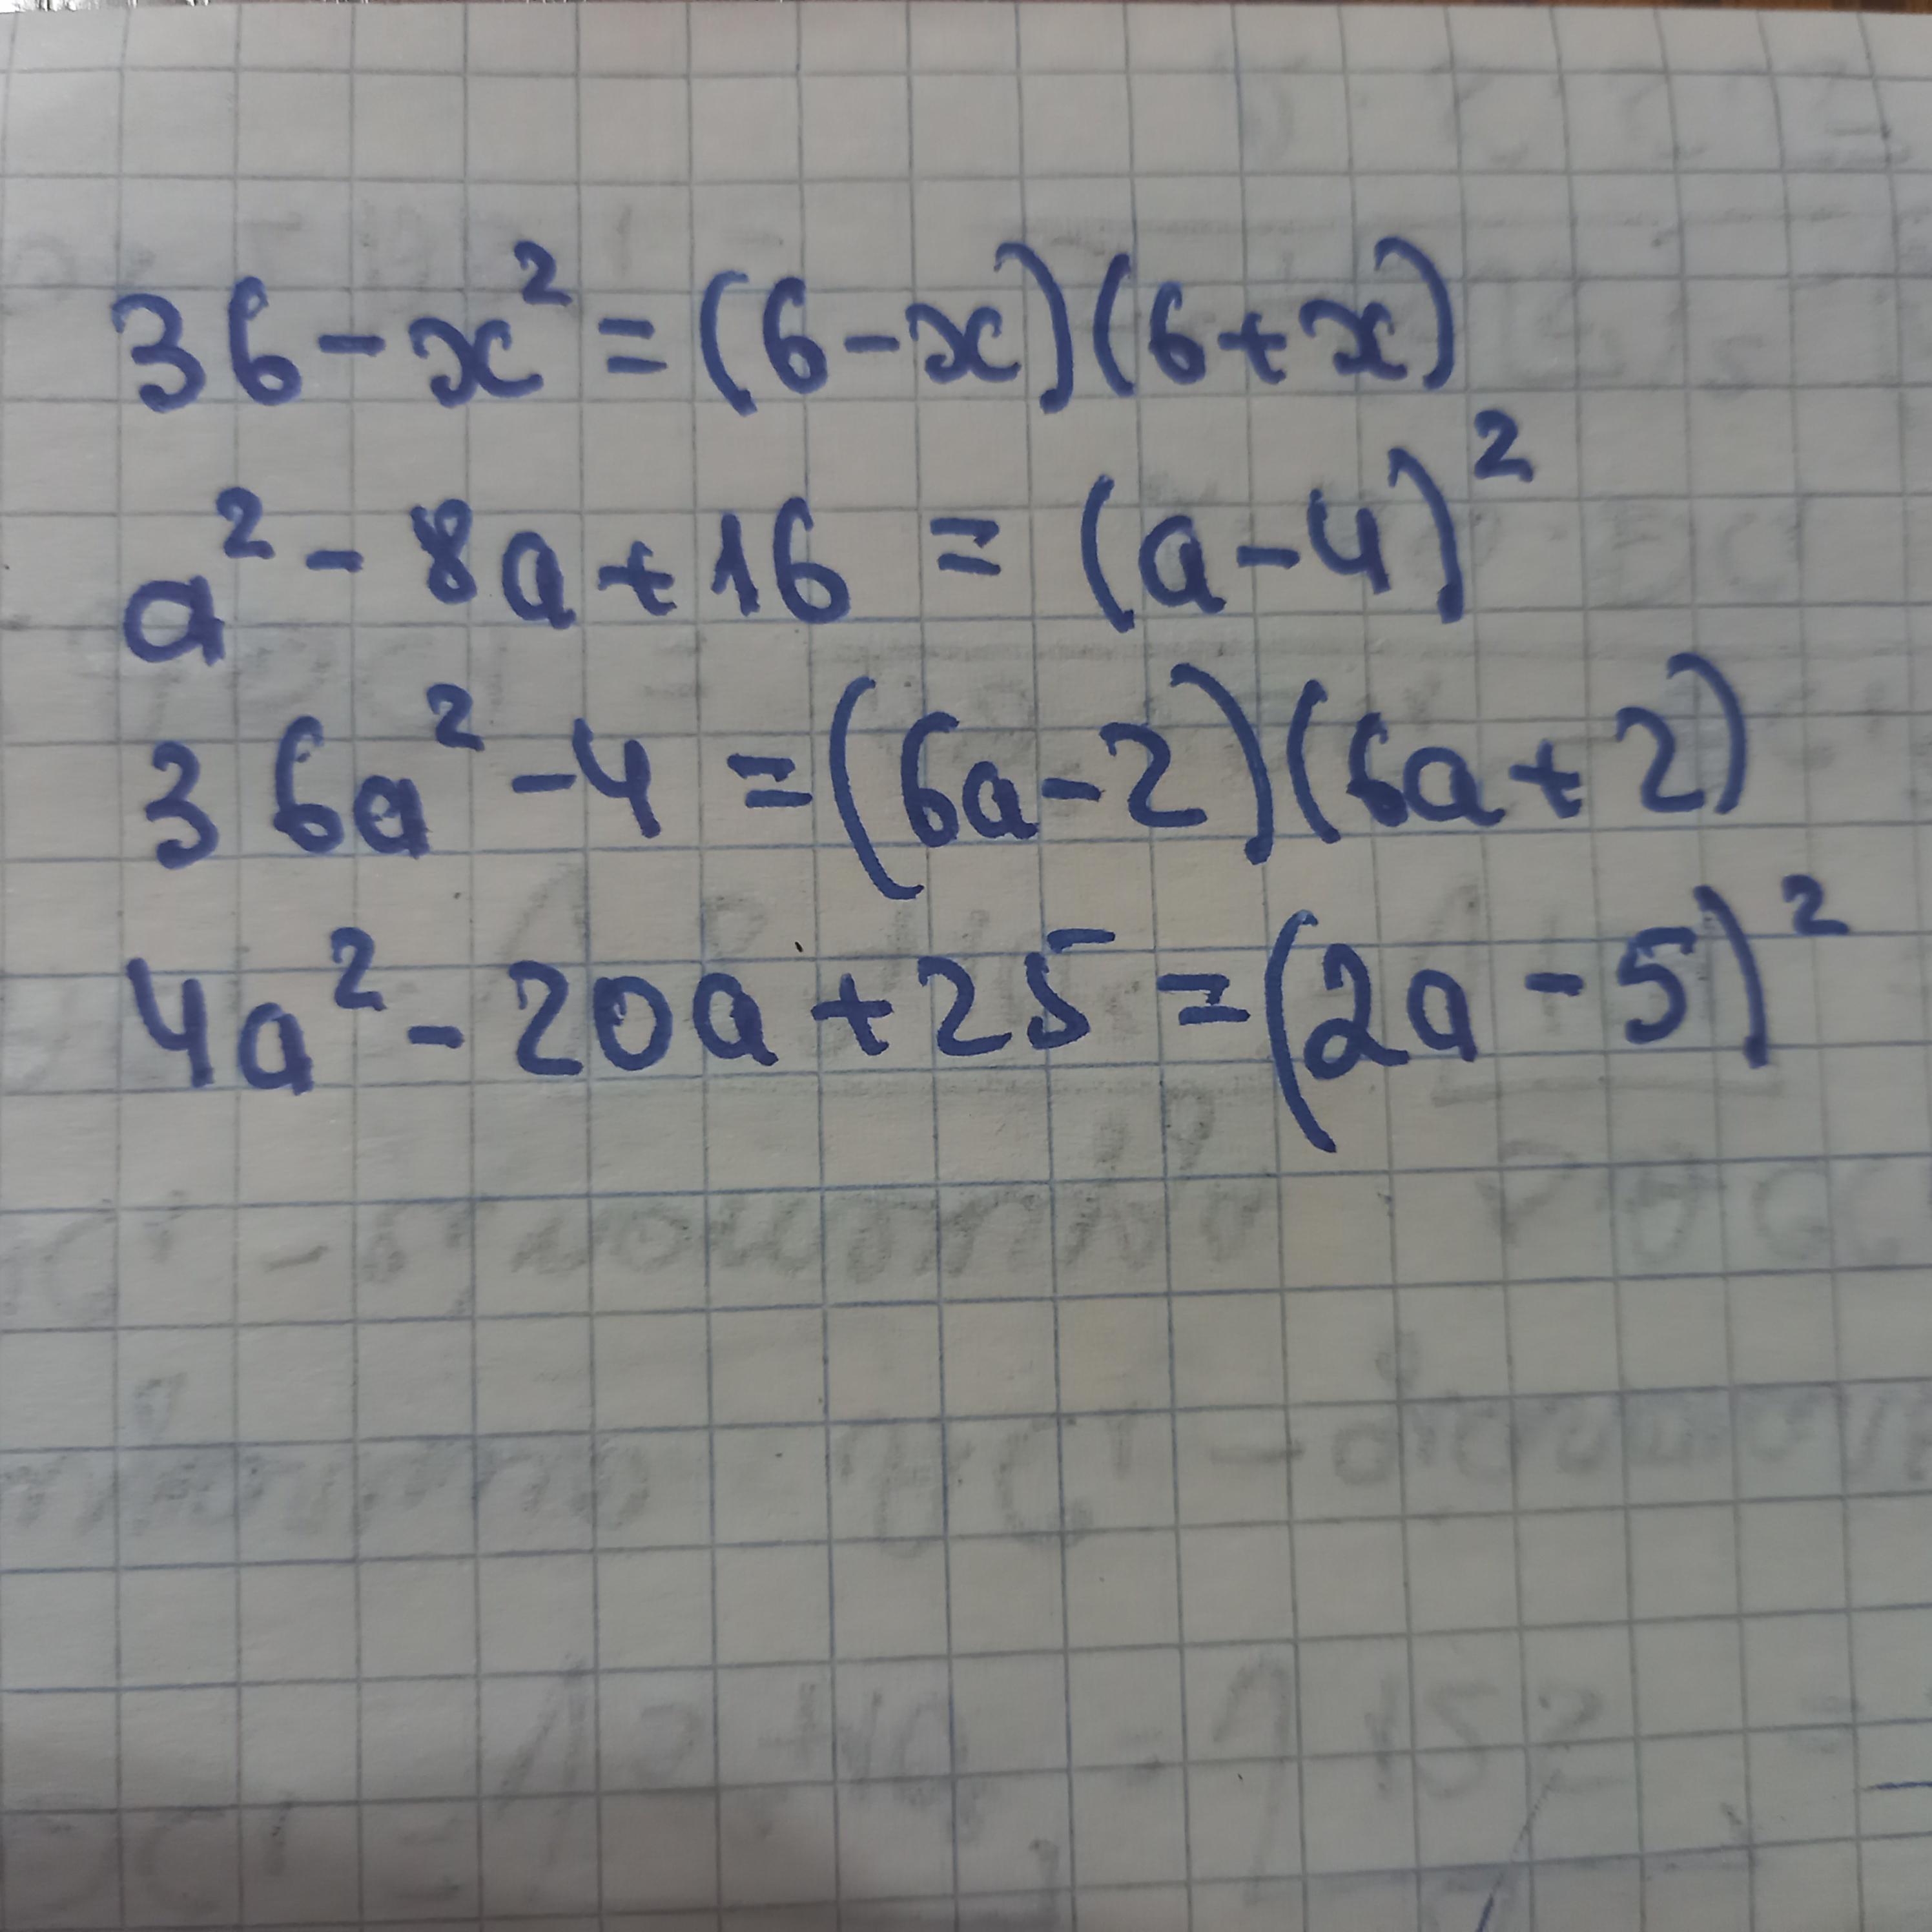 36-x²=(6-x)(6+x)
a²-8a+16=(a-4)²
36a²-4=(6a-2)(6a+2)
4a²-20a+25=(2a-5)²